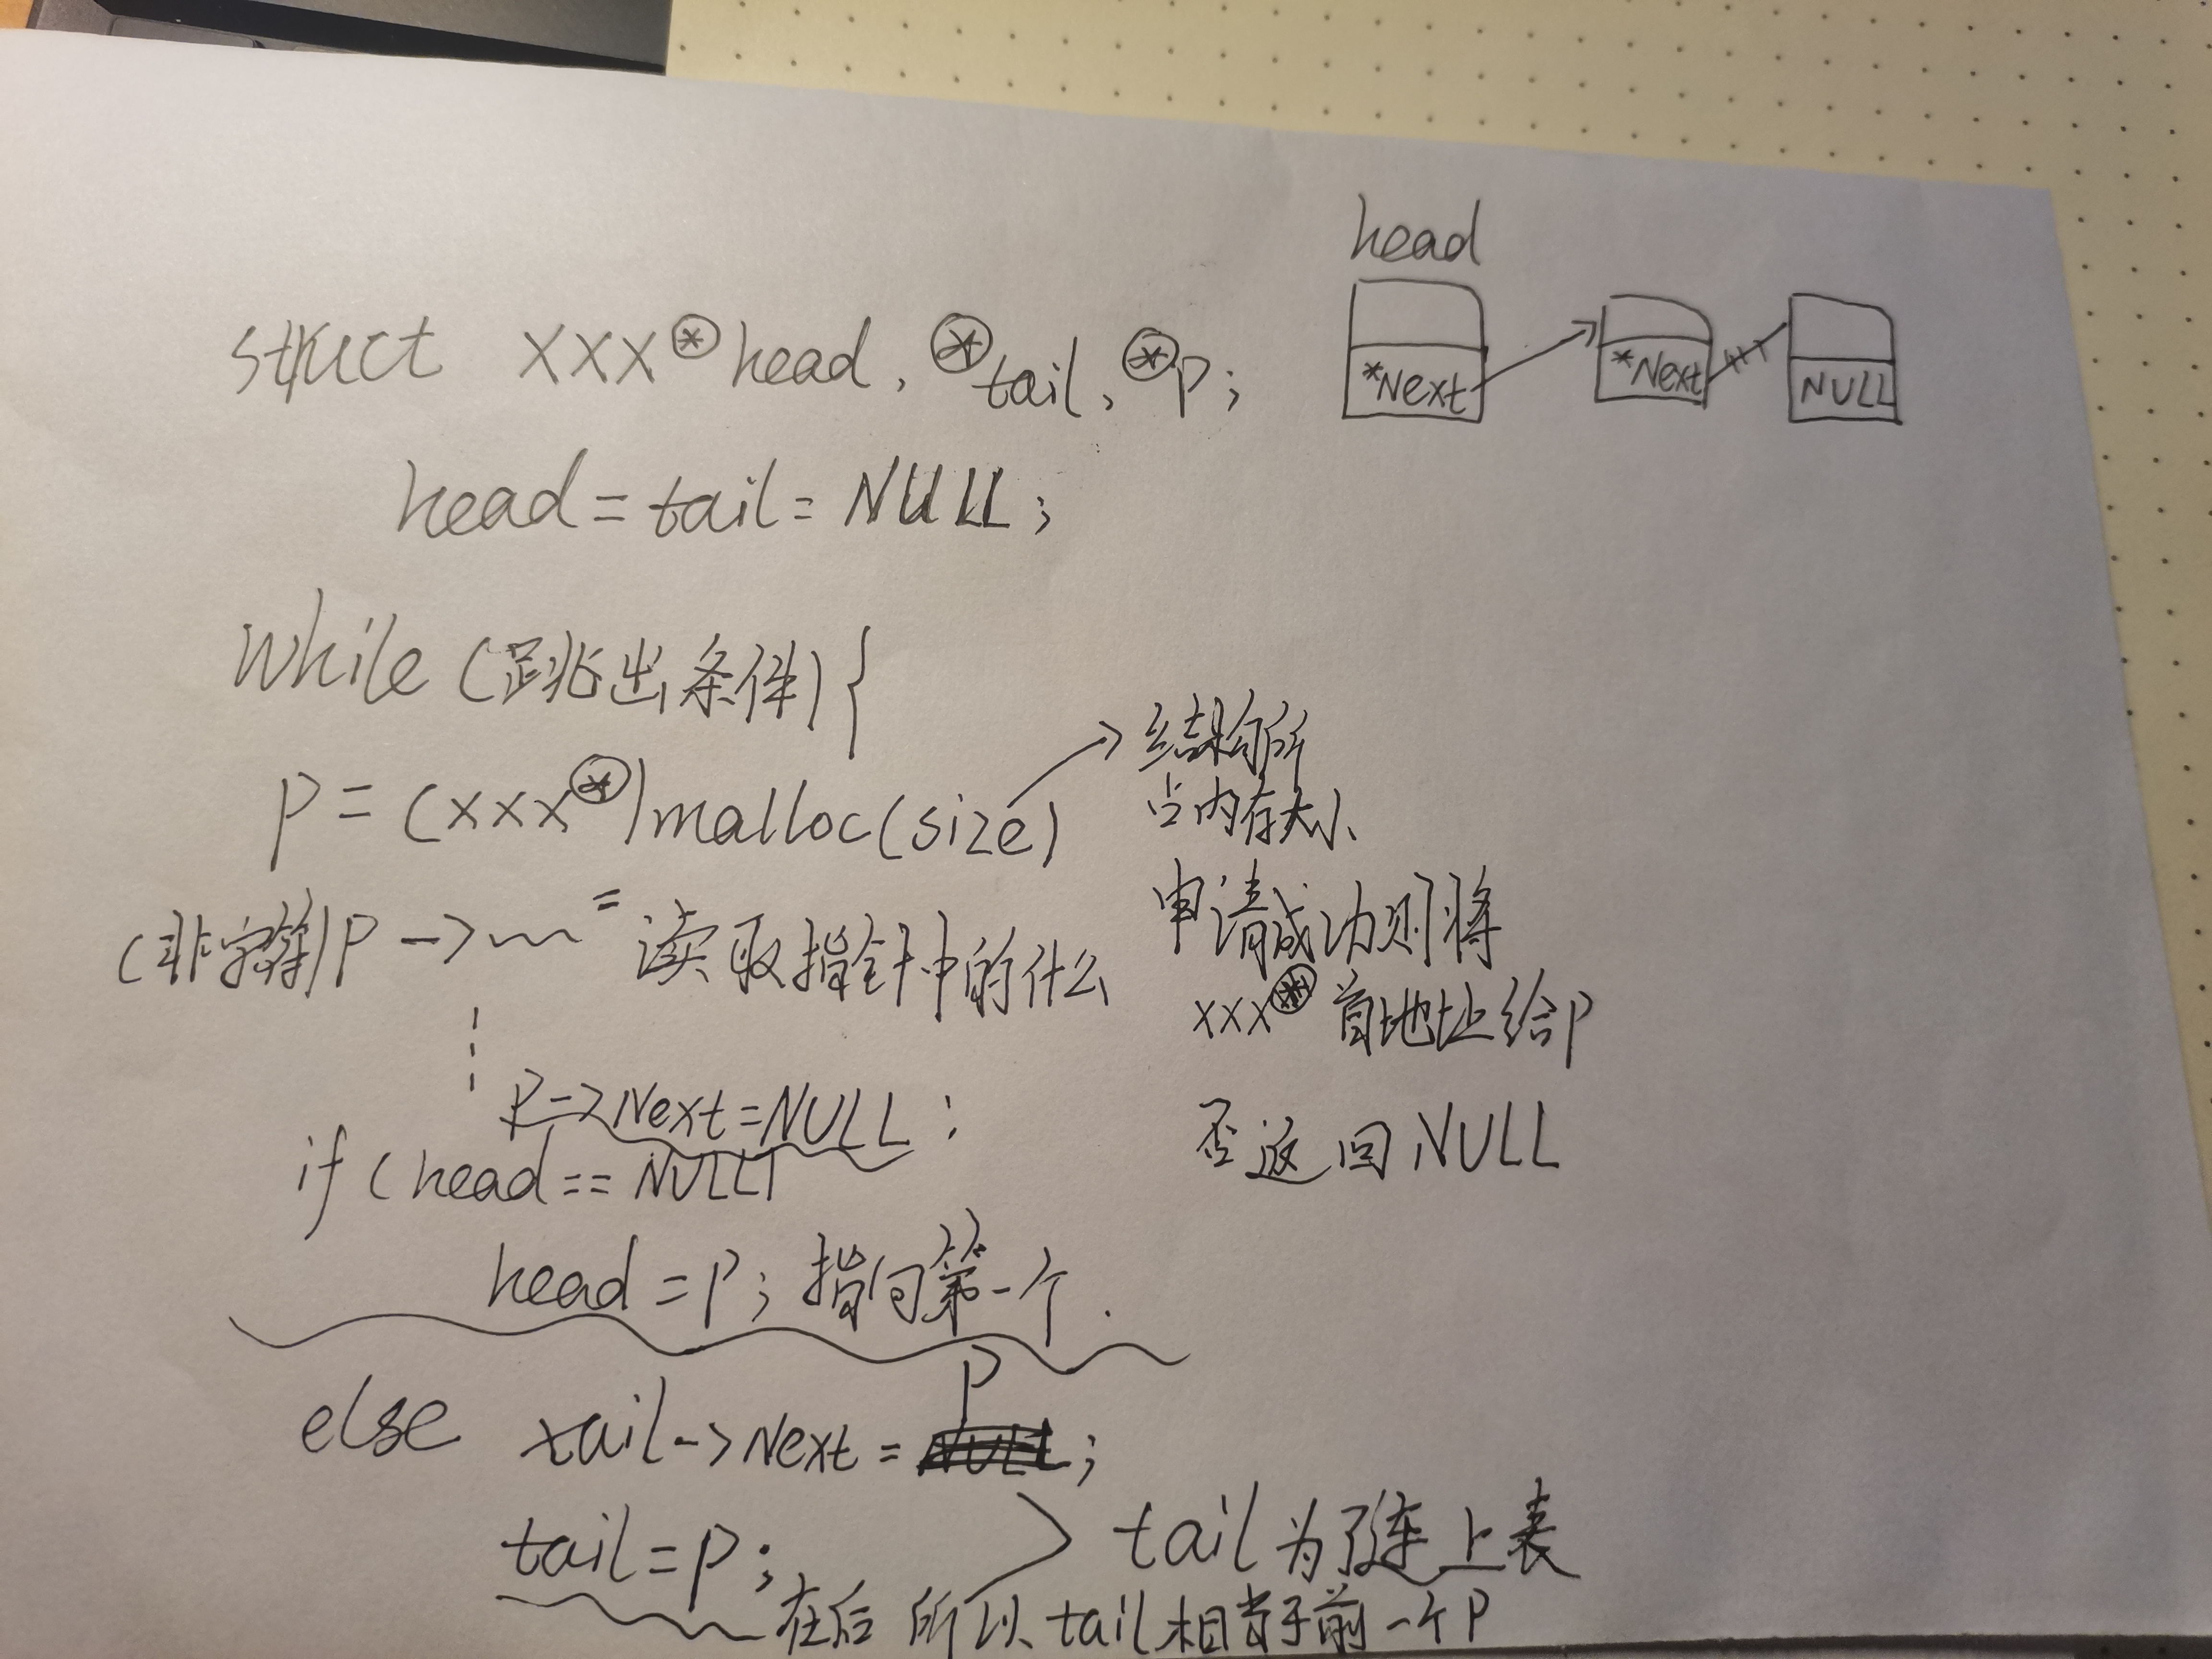 head
struct xxx*head, *tail, *p;
*Next *Next NULL
head=tail=NULL;
while (跳出条件) {
p=(xxx*)malloc(size)
结构所
占内存大小
(非字符)p->~~= 读取指针中的什么
申请成功则将
xxx* 首地址给p
p->Next=NULL;
否返回NULL
if (head==NULL)
head=p; 指向第一个.
else tail->Next=p;
tail=p;
tail为了连上表
在后 所以tail相当于前一个p